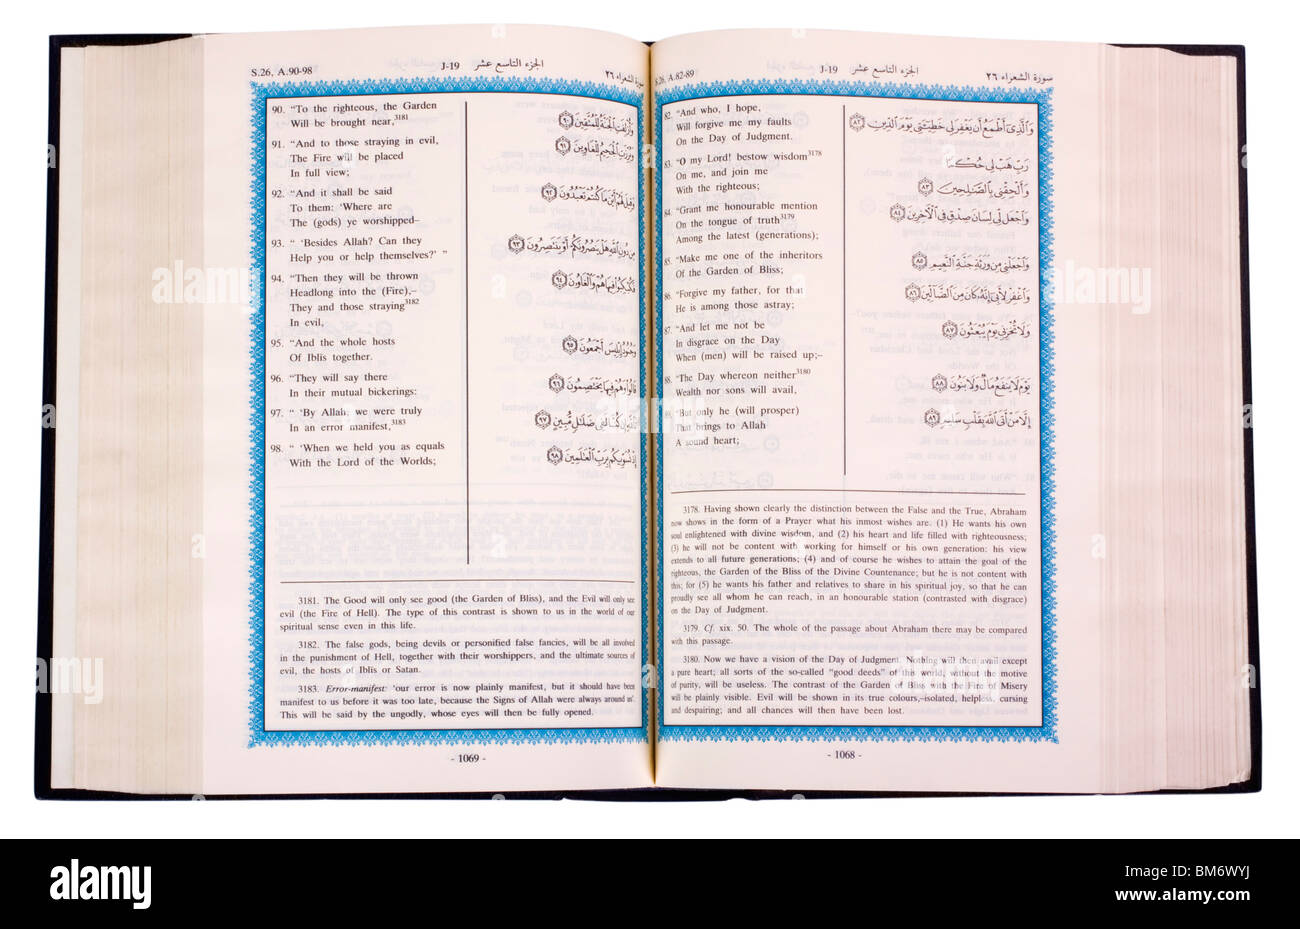 S.26, A.82-89
J-19
الجزء التاسع عشر
سورة الشعراء ٢٦
82. “And who, I hope,
Will forgive me my faults
On the Day of Judgment.
83. “O my Lord! bestow wisdom3178
On me, and join me
With the righteous;
84. “Grant me honourable mention
On the tongue of truth3179
Among the latest (generations);
85. “Make me one of the inheritors
Of the Garden of Bliss;
86. “Forgive my father, for that
He is among those astray;
87. “And let me not be
In disgrace on the Day
When (men) will be raised up;–
88. “The Day whereon neither3180
Wealth nor sons will avail,
89. “But only he (will prosper)
That brings to Allah
A sound heart;
وَٱلَّذِىٓ أَطْمَعُ أَن يَغْفِرَ لِى خَطِيٓـَٔتِى يَوْمَ ٱلدِّينِ ٨٢
رَبِّ هَبْ لِى حُكْمًا
وَأَلْحِقْنِى بِٱلصَّـٰلِحِينَ ٨٣
وَٱجْعَل لِّى لِسَانَ صِدْقٍ فِى ٱلْـَٔاخِرِينَ ٨٤
وَٱجْعَلْنِى مِن وَرَثَةِ جَنَّةِ ٱلنَّعِيمِ ٨٥
وَٱغْفِرْ لِأَبِىٓ إِنَّهُۥ كَانَ مِنَ ٱلضَّآلِّينَ ٨٦
وَلَا تُخْزِنِى يَوْمَ يُبْعَثُونَ ٨٧
يَوْمَ لَا يَنفَعُ مَالٌ وَلَا بَنُونَ ٨٨
إِلَّا مَنْ أَتَى ٱللَّهَ بِقَلْبٍ سَلِيمٍ ٨٩
3178. Having shown clearly the distinction between the False and the True, Abraham
now shows in the form of a Prayer what his inmost wishes are. (1) He wants his own
soul enlightened with divine wisdom, and (2) his heart and life filled with righteousness;
(3) he will not be content with working for himself or his own generation: his view
extends to all future generations; (4) and of course he wishes to attain the goal of the
righteous, the Garden of the Bliss of the Divine Countenance; but he is not content with
this; for (5) he wants his father and relatives to share in his spiritual joy, so that he can
proudly see all whom he can reach, in an honourable station (contrasted with disgrace)
on the Day of Judgment.
3179. Cf. xix. 50. The whole of the passage about Abraham there may be compared
with this passage.
3180. Now we have a vision of the Day of Judgment. Nothing will then avail except
a pure heart; all sorts of the so-called “good deeds” of this world, without the motive
of purity, will be useless. The contrast of the Garden of Bliss with the Fire of Misery
will be plainly visible. Evil will be shown in its true colours,–isolated, helpless, cursing
and despairing; and all chances will then have been lost.
- 1068 -
S.26, A.90-98
J-19
الجزء التاسع عشر
سورة الشعراء ٢٦
90. “To the righteous, the Garden
Will be brought near,3181
91. “And to those straying in evil,
The Fire will be placed
In full view;
92. “And it shall be said
To them: ‘Where are
The (gods) ye worshipped–
93. “ ‘Besides Allah? Can they
Help you or help themselves?’ ”
94. “Then they will be thrown
Headlong into the (Fire),–
They and those straying3182
In evil,
95. “And the whole hosts
Of Iblis together.
96. “They will say there
In their mutual bickerings:
97. “ ‘By Allah, we were truly
In an error manifest,3183
98. “ ‘When we held you as equals
With the Lord of the Worlds;
وَأُزْلِفَتِ ٱلْجَنَّةُ لِلْمُتَّقِينَ ٩٠
وَبُرِّزَتِ ٱلْجَحِيمُ لِلْغَاوِينَ ٩١
وَقِيلَ لَهُمْ أَيْنَ مَا كُنتُمْ تَعْبُدُونَ ٩٢
مِن دُونِ ٱللَّهِ هَلْ يَنصُرُونَكُمْ أَوْ يَنتَصِرُونَ ٩٣
فَكُبْكِبُوا۟ فِيهَا هُمْ وَٱلْغَاوُۥنَ ٩٤
وَجُنُودُ إِبْلِيسَ أَجْمَعُونَ ٩٥
قَالُوا۟ وَهُمْ فِيهَا يَخْتَصِمُونَ ٩٦
تَٱللَّهِ إِن كُنَّا لَفِى ضَلَـٰلٍ مُّبِينٍ ٩٧
إِذْ نُسَوِّيكُم بِرَبِّ ٱلْعَـٰلَمِينَ ٩٨
3181. The Good will only see good (the Garden of Bliss), and the Evil will only see
evil (the Fire of Hell). The type of this contrast is shown to us in the world of our
spiritual sense even in this life.
3182. The false gods, being devils or personified false fancies, will be all involved
in the punishment of Hell, together with their worshippers, and the ultimate sources of
evil, the hosts of Iblis or Satan.
3183. Error-manifest: ‘our error is now plainly manifest, but it should have been
manifest to us before it was too late, because the Signs of Allah were always around us’.
This will be said by the ungodly, whose eyes will then be fully opened.
- 1069 -
alamy
Image ID: BM6WYJ
www.alamy.com